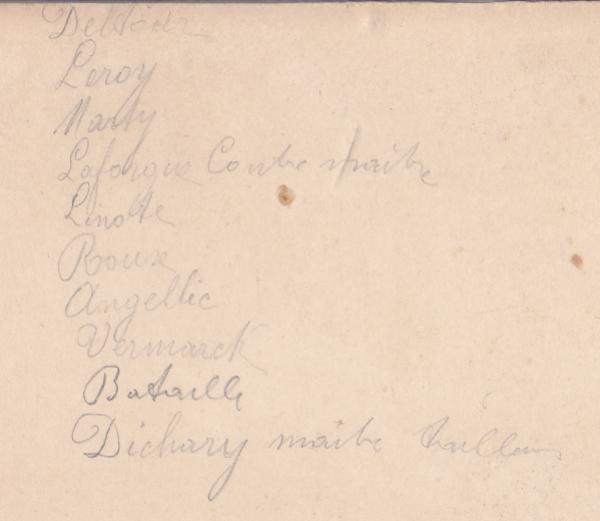 Leroy
Marty
Laforgue Contre maitre
Linotte
Roux
Angellic
Vermarck
Bataille
Dichary maitre tailleur